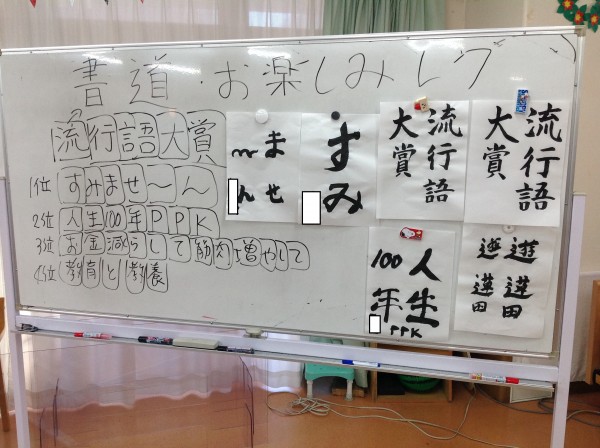 書道・お楽しみレク
流行語大賞
1位 すみませ〜ん
2位 人生100年PPK
3位 お金減らして筋肉増やして
4位 教育と教養
ませ
〜ん
すみ
流行語
大賞
流行語
大賞
人生
100年
PPK